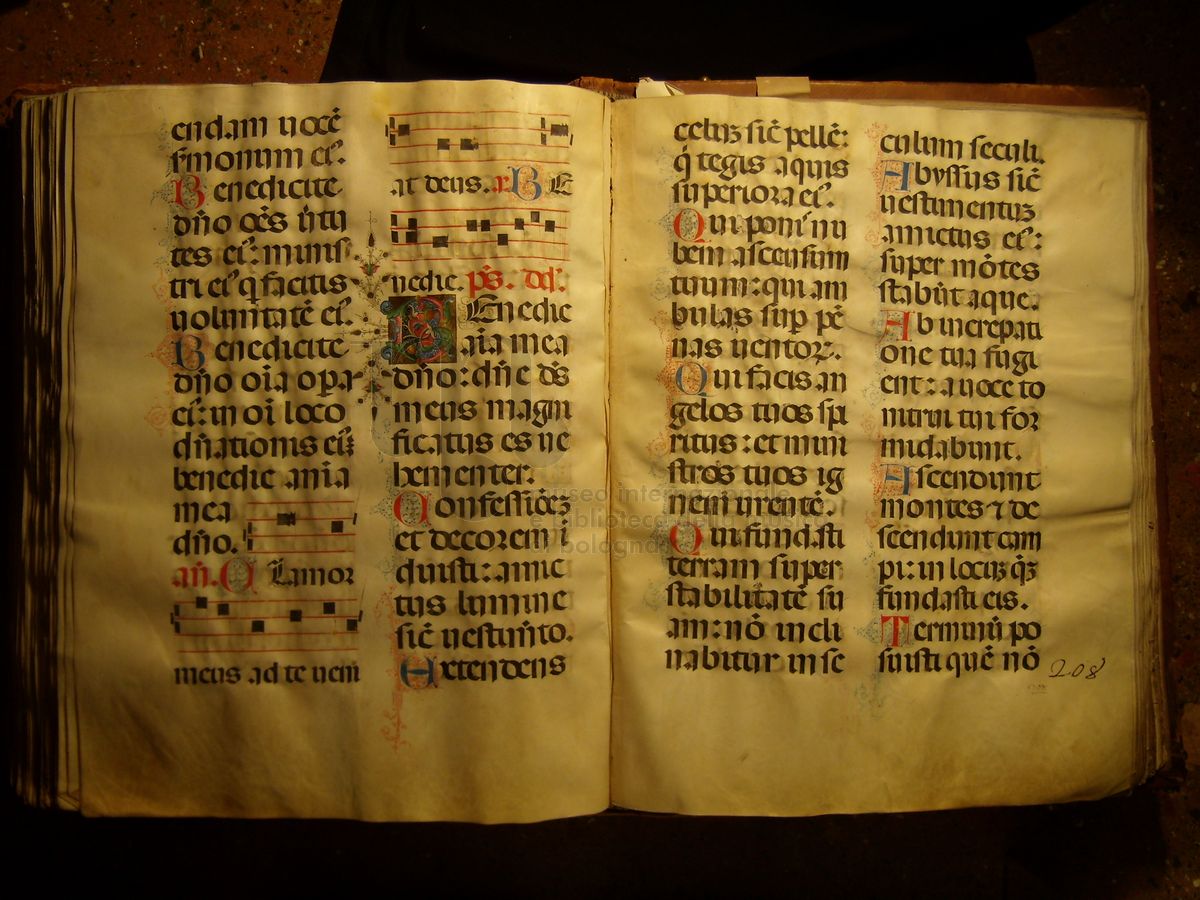 endam uocē
ẜmonum eiꝰ.
Benedicite
dn̄o oēs uirtu
tes eiꝰ: minis
tri eiꝰ q̄ facitis
uoluntatē eiꝰ.
Benedicite
dn̄o oīa op̄a
eiꝰ: in oī loco
dn̄ationis eiꝰ
benedic aīa
mea
dn̄o.
añ. Clamor
meus ad te ueni
at deus. Be
nedic. pš.
Benedic
aīa mea
dn̄o: dn̄e dš
meus magni
ficatus es ue
hementer.
Confessiōez
et decorem i
duisti: amic
tus lumine
sic̄ uestimn̄to.
Extendens
celuꝫ sic̄ pellē:
q̄ tegis aquis
superiora eiꝰ.
Qui ponis nu
bem ascensum
tuum: qui am
bulas suꝑ pē
nas uentoꝝ.
Qui facis an
gelos tuos spi
ritus: et mini
stros tuos ig
nem urentē.
Qui fundasti
terram super
stabilitatē su
am: nō incli
nabitur in se
culum seculi.
Abyssus sic̄
uestimentuꝫ
amictus eiꝰ:
super mōtes
stabūt aque.
Ab increpati
one tua fugi
ent: a uoce to
nitrui tui for
midabunt.
Ascendunt
montes ⁊ de
scendunt cam
pi: in locuꝫ q̄ꝫ
fundasti eis.
Terminū po
suisti quē nō
208
museo internazionale
e biblioteca della musica
di bologna